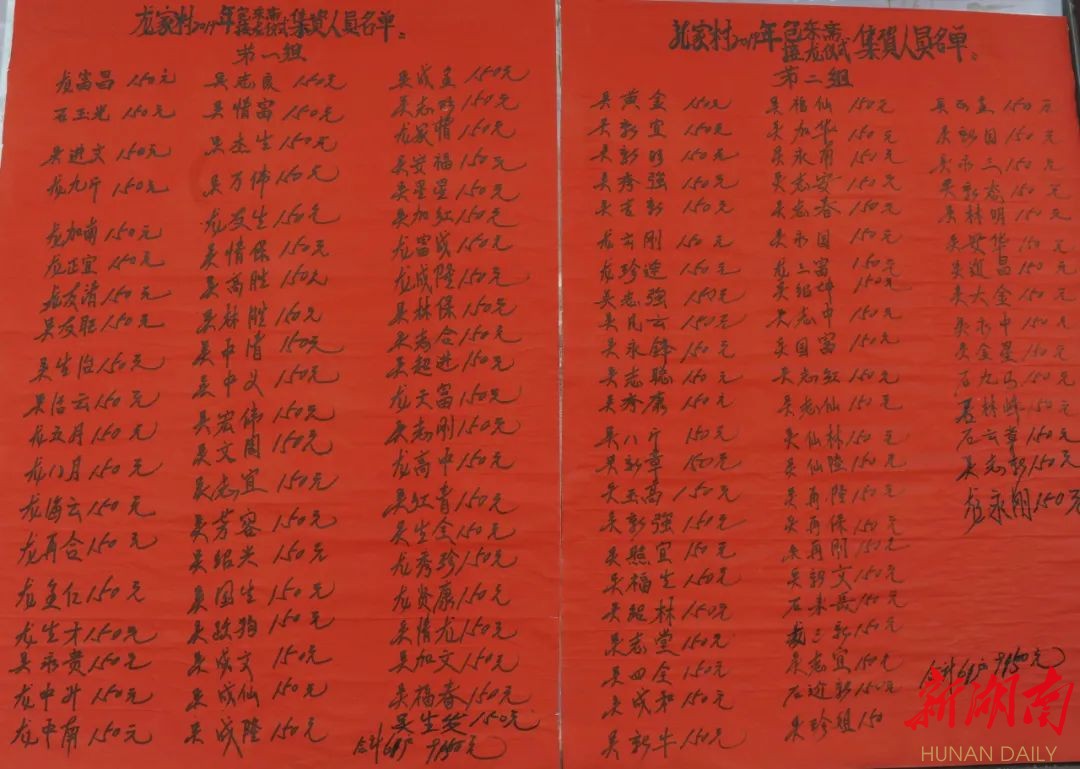 龙家村2019年包东斋接龙仪式集资人员名单:
第一组
龙富昌 150元
石玉光 150元
吴进文 150元
龙九斤 150元
龙加南 150元
龙正宜 150元
龙友清 150元
吴友胜 150元
吴生治 150元
吴治云 150元
龙五月 150元
龙八月 150元
龙海云 150元
龙再合 150元
龙金仁 150元
龙生才 150元
吴永贵 150元
龙中升 150元
龙中南 150元
吴志良 150元
吴情富 150元
吴杰生 150元
吴万伟 150元
龙友生 150元
吴情保 150元
吴高胜 150元
吴林胜 150元
吴中清 150元
吴中义 150元
吴宏伟 150元
吴文周 150元
吴志宜 150元
吴芳容 150元
吴绍兴 150元
吴国生 150元
吴政狗 150元
吴成文 150元
吴成仙 150元
吴成隆 150元
吴成金 150元
吴志珍 150元
150元
吴安福 150元
吴星星 150元
吴加红 150元
龙富成 150元
龙成隆 150元
吴林保 150元
吴志合 150元
吴超进 150元
龙天富 150元
吴志刚 150元
龙高中 150元
吴红青 150元
吴生全 150元
龙秀珍 150元
龙贤康 150元
吴情龙 150元
吴加文 150元
吴福春 150元
吴生 150元
合计61户 9150元
龙家村2019年包东斋接龙仪式集资人员名单:
第二组
吴黄金 150元
吴新宜 150元
吴新明 150元
吴秀强 150元
吴志新 150元
龙云刚 150元
龙珍 150元
吴志强 150元
吴凡云 150元
吴永锋 150元
吴志聪 150元
吴秀康 150元
吴八斤 150元
吴新章 150元
吴玉高 150元
吴新强 150元
吴照宜 150元
吴福生 150元
吴绍林 150元
吴志堂 150元
吴四全 150元
吴成和 150元
吴新牛 150元
吴福仙 150元
吴加华 150元
吴永有 150元
吴志安 150元
吴志春 150元
吴永国 150元
龙二富 150元
吴绍坤 150元
吴志中 150元
吴国富 150元
吴志红 150元
吴志仙 150元
吴仙林 150元
吴仙隆 150元
吴再隆 150元
吴再保 150元
吴再刚 150元
吴新文 150元
石来长 150元
龙三新 150元
吴志宜 150元
石进新 150元
吴珍姐 150
吴玉金 150元
吴新国 150元
吴永三 150元
吴新志 150元
吴林明 150元
150元
吴道昌 150元
吴大金 150元
吴永中 150元
吴金星 150元
石九马 150元
吴林峰 150元
石云章 150元
吴志新 150元
龙永刚 150元
合计61户 9150元
新湖南
HUNAN DAILY